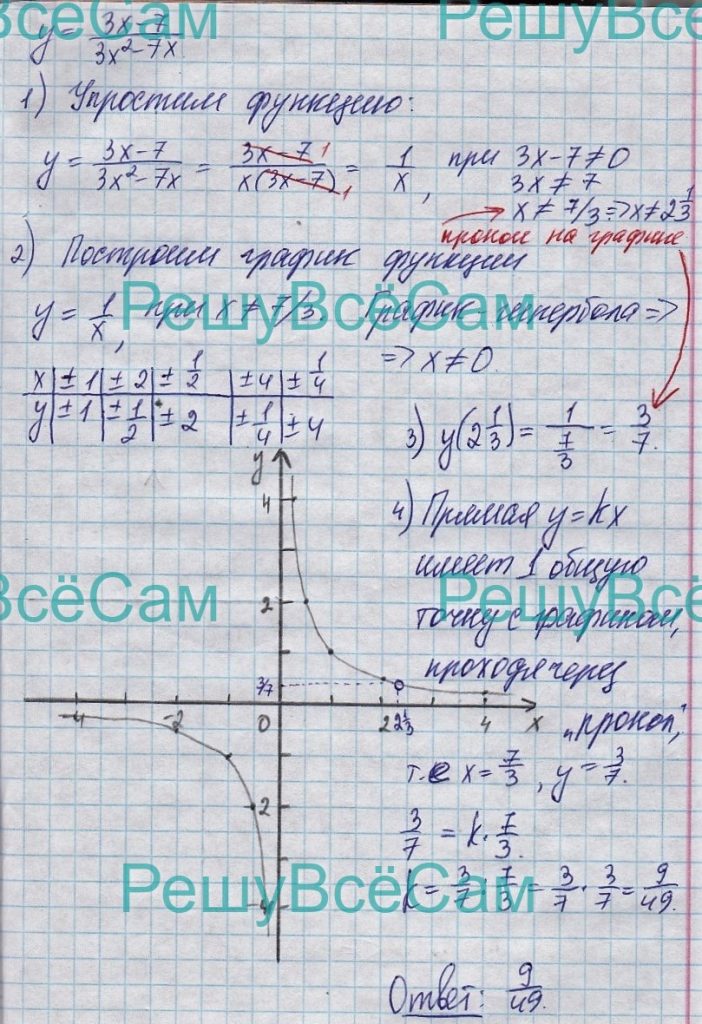 y = (3x-7)/(3x²-7x)
РешуВсёСам
1) Упростим функцию:
y = (3x-7)/(3x²-7x) = (3x-7)/(x(3x-7)) = 1/x, при 3x-7≠0
3x ≠ 7
x ≠ 7/3 => x ≠ 2 1/3
прокол на графике
2) Построим график функции
y = 1/x, при x ≠ 7/3. График - гипербола =>
РешуВсёСам
=> x ≠ 0.
x | ±1 | ±2 | ±1/2 | ±4 | ±1/4
y | ±1 | ±1/2 | ±2 | ±1/4 | ±4
3) y(2 1/3) = 1/(7/3) = 3/7.
4) Прямая y = kx
имеет 1 общую
точку с графиком,
проходя через
"прокол",
т.е x = 7/3, y = 3/7.
3/7 = k · 7/3.
k = 3/7 : 7/3 = 3/7 · 3/7 = 9/49.
y
4
2
3/7
-4 -2 0 2 2 1/3 4 x
2
4
РешуВсёСам
Ответ: 9/49.